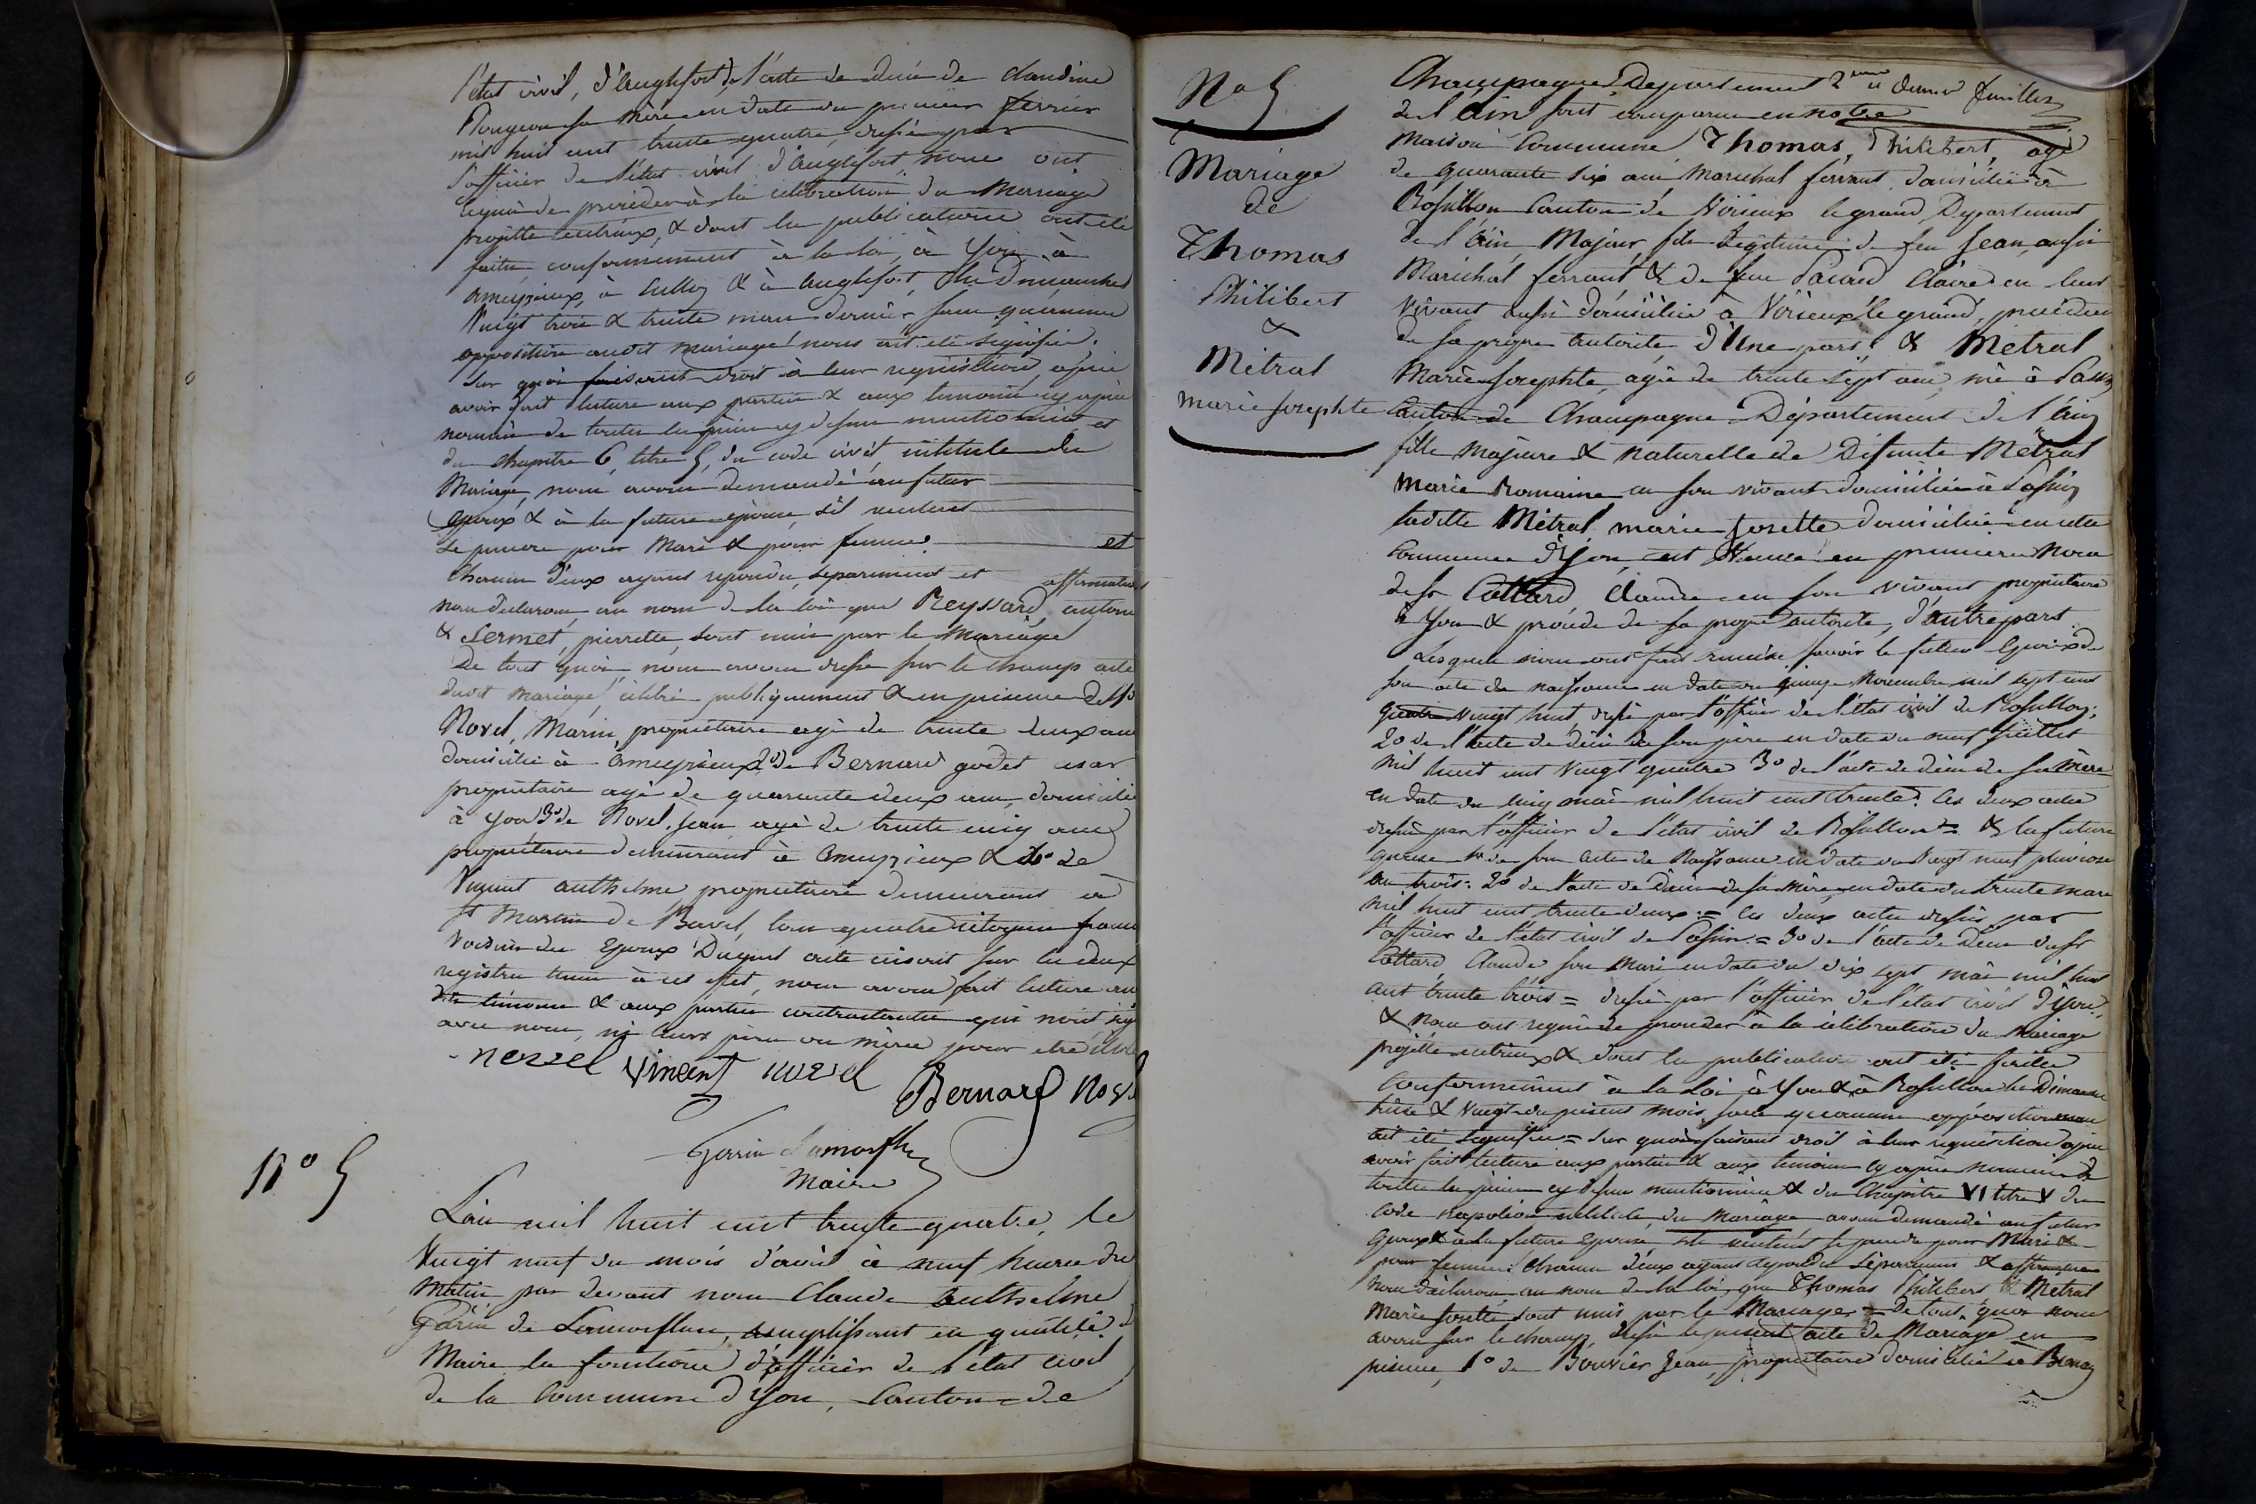 l'état civil, d'anglefort, l'acte de décès de claudine
sa mère en date du premier février
mil huit cent trente quatre, dressé par
l'officier de l'état civil d'anglefort nous ont
requis de procéder à la célébration du Mariage
projetté entr'eux, & dont les publications ont été
faites conformément à la loi, à Yon, à
ameyzieux, à Culloz & à anglefort, les Dimanches
Vingt trois & trente mars dernier, sans qu'aucune
opposition audit mariage nous ait été signifiée.
Sur quoi faisant droit à leur réquisition, après
avoir fait lecture aux parties & aux témoins cy après
nommés de toutes les pièces cy dessus mentionnées et
du chapitre 6, titre 5, du code civil, intitulé du
Mariage, nous avons demandé au futur
époux & à la future épouse s'il veulent
se prendre pour Mari & pour femme. et
Chacun d'eux ayant répondu, séparément et affirmativement
nous déclarons, au nom de la loi que Reyssard, antoine
& Sermet, pierrette, sont unis par le Mariage
De tout quoi, nous avons dressé sur le champ acte
dudit mariage, célébré publiquement & en présence de 1o
Novel, Marin, propriétaire agé de trente deux ans
domicilié à ameyzieux 2o de Bernard godet
propriétaire agé de quarante deux ans, domicilié
à Yon 3o de Novel, Jean agé de trente cinq ans
propriétaire demeurant à ameyzieux & 4o de
Vincent anthelme propriétaire demeurant à
St Martin de Bavel, tous quatre citoyens francs
Voisins des Epoux Duquel acte inscrit sur les deux
registres tenus à cet effet, nous avons fait lecture aux
dits témoins & aux parties contractantes qui n'ont signé
avec nous, ni leurs pères ou mères pour être
novel Vincent novel
Bernard Nov
Gerin Lamorfl
Maire
No 5
L'an mil huit cent trente quatre, le
Vingt neuf du mois d'avril à neuf heures du
Matin par devant nous Claude anthelme
Gérin de Lamorflan, remplissant en qualité de
Maire les fonctions d'officier de l'état civil
de la commune d'Yon, Canton de
No 5
Mariage
de
Thomas
Philibert
&
Métral
marie Josephte
Champagne Département 2eme et dernier feuillet
de l'ain sont comparus en notre
Maison Commune Thomas, Philibert, agé
de quarante six ans Maréchal ferrant, domicilié à
Rossillon Canton de Virieux le grand, Département
de l'ain, Majeur, fils légitime de feu Jean, aussi
Maréchal ferrant & de feue Picard Claire en leur
vivant aussi domiciliés à Virieux le grand, procédant
de sa propre autorité d'Une part, & Métral
Marie Josephte, agée de trente sept ans, née à Passin
Canton de Champagne Département de l'ain
fille majeure & naturelle de Défunte Métral
Marie Romaine en son vivant domiciliée à Passin
ladite Métral, marie Josette domiciliée en cette
commune d'Yon, est Veuve en première Noce
de Sr Cottard Claude en son vivant propriétaire
à Yon & procède de sa propre autorité, d'autre part
Lesquels nous ont fait remise savoir le futur Epoux de
son acte de naissance en date du quinze Novembre mil sept cent
quatre Vingt huit, dressé par l'officier de l'état civil de Rossillon;
2o de l'acte de décès de son père en date du neuf juillet
mil huit cent Vingt quatre 3o de l'acte de décès de sa Mère
en date du cinq mai mil huit cent trente. Ces deux actes
dressés par l'officier de l'état civil de Rossillon = & la future
épouse 1o de son acte de Naissance en date du Vingt neuf pluviose
an trois: 2o de l'acte de décès de sa Mère en date du trente mars
mil huit cent trente deux := les deux actes dressés par
l'officier de l'état civil de Passin = 3o de l'acte de Décès du Sr
Cottard Claude son Mari en date du dix sept mai mil huit
cent trente trois = dressé par l'officier de l'état civil d'Yon,
& nous ont requis de procéder à la célébration du Mariage
projetté entr'eux & dont les publications ont été faites
conformément à la Loi à Yon & à Rossillon les Dimanches
treize & Vingt du présent mois, sans qu'aucune opposition nous
ait été signifiée = Sur quoi faisant droit à leur réquisition après
avoir fait lecture aux parties & aux témoins cy après nommés de
toutes les pièces cy dessus mentionnées & du Chapitre VI titre V du
Code Napoléon intitulé, du Mariage avons demandé au futur
époux & à la future Epouse, s'ils veulent se prendre pour Mari &
pour femme: Chacun d'eux ayant répondu Séparément & affirmativement
Nous déclarons au nom de la loi que Thomas Philibert & Métral
Marie Josette sont unis par le Mariage = De tout quoi nous
avons sur le champ dressé le présent acte de Mariage en
présence, 1o de Bouvier Jean, propriétaire domicilié à